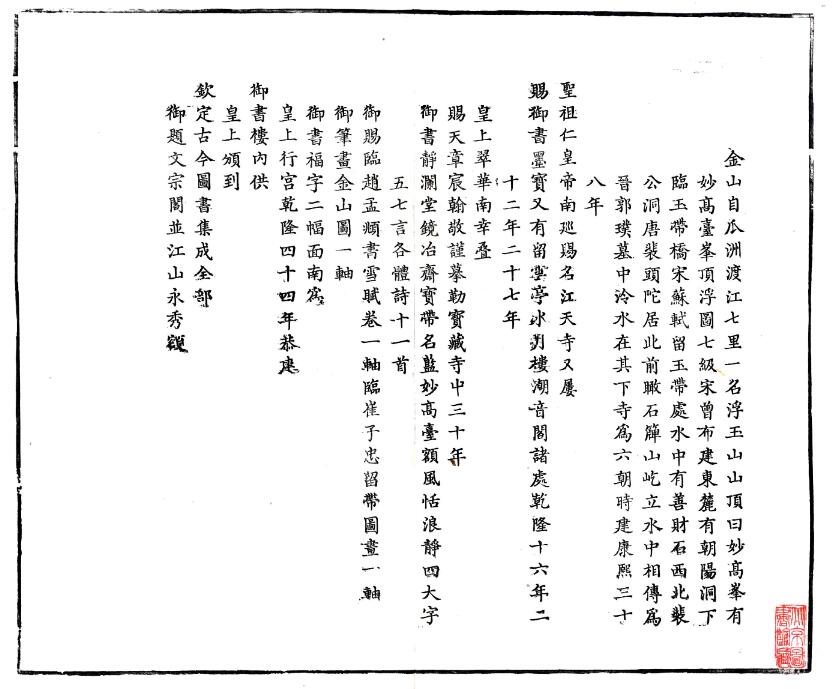 金山自瓜洲渡江七里一名浮玉山山頂曰妙高峯有
妙高臺峯頂浮圖七級宋曾布建東麓有朝陽洞下
臨玉帶橋宋蘇軾留玉帶處水中有善財石西北裴
公洞唐裴頭陀居此前瞰石簰山屹立水中相傳為
晉郭璞墓中泠水在其下寺為六朝時建康熙三十
八年
聖祖仁皇帝南巡賜名江天寺又屢
賜御書墨寶又有留雲亭冰玥樓潮音閣諸處乾隆十六年二
十二年二十七年
皇上翠華南幸疊
賜天章宸翰敬謹摹勒寶藏寺中三十年
御書靜瀾堂鏡冶齋寶帶名藍妙高臺額風恬浪靜四大字
五七言各體詩十一首
御賜臨趙孟頫書雪賦卷一軸臨崔子忠留帶圖畫一軸
御筆畫金山圖一軸
御書福字二幅面南為
皇上行宮乾隆四十四年恭建
御書樓內供
皇上頒到
欽定古今圖書集成全部
御題文宗閣並江山永秀額